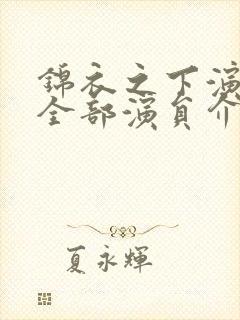 錦衣之下演
全部演員介
夏永輝